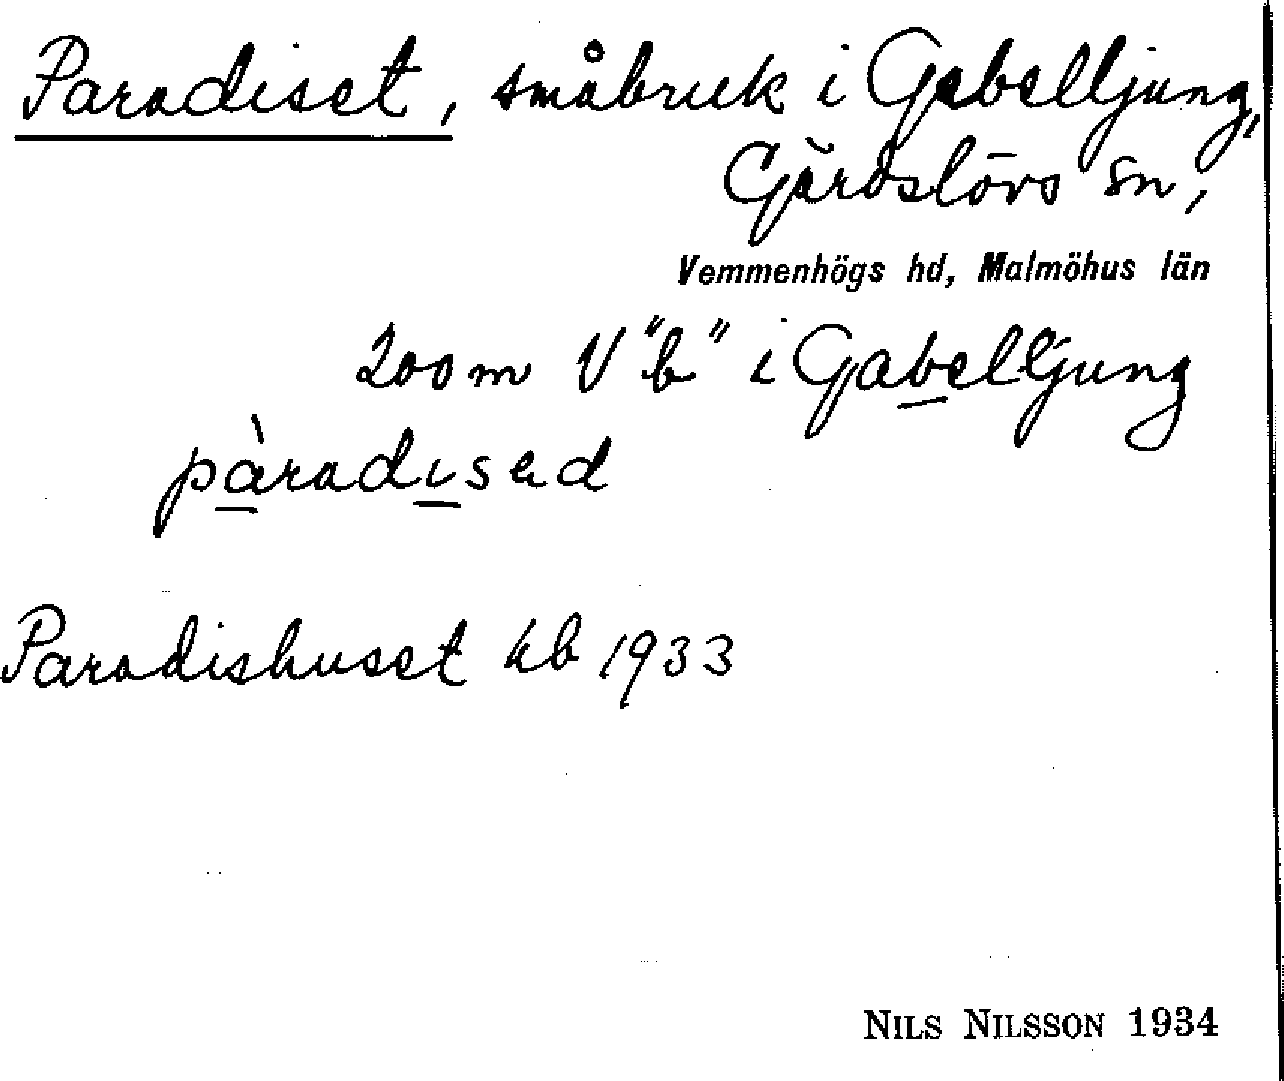 Paradiset, småbruk i Gabelljung,
Gärdslövs sn,
Vemmenhögs hd, Malmöhus län
200 m V "b" i Gabelljung
pàradisəd
Paradishuset kb 1933
NILS NILSSON 1934